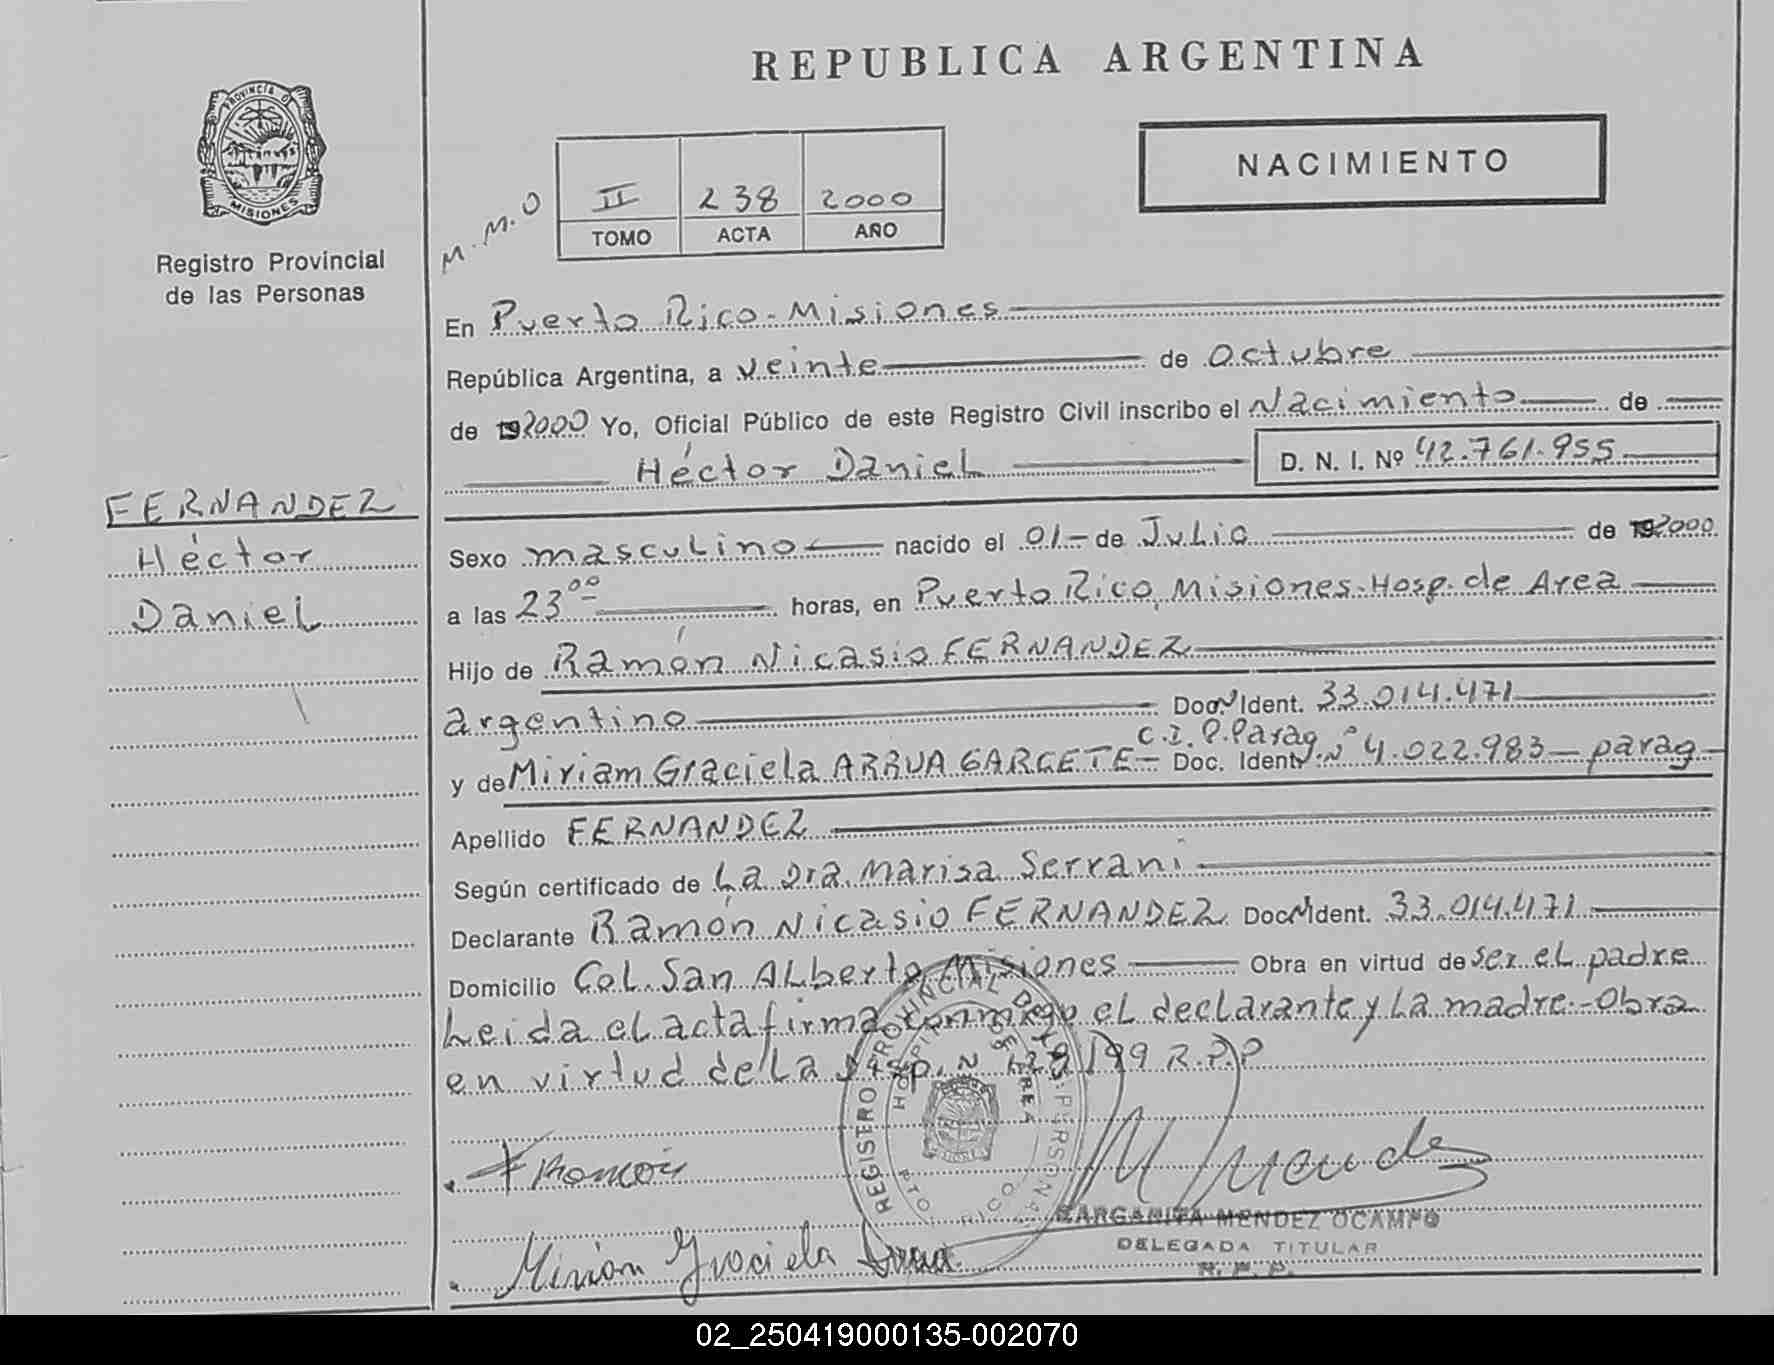 REPUBLICA ARGENTINA
NACIMIENTO
PROVINCIA D
MISIONES
Registro Provincial
de las Personas
M.M.O
II 238 2000
TOMO ACTA AÑO
En Puerto Rico - Misiones
República Argentina, a veinte de octubre
de 192000 Yo, Oficial Público de este Registro Civil inscribo el Nacimiento de
Héctor Daniel D. N. I. Nº 42.761.955
FERNANDEZ
Héctor
Daniel
Sexo masculino nacido el 01 - de Julio de 192000
a las 23 00 horas, en Puerto Rico, Misiones - Hosp. de Area
Hijo de Ramón Nicasio FERNANDEZ
argentino Doc. N Ident. 33.014.471
C.I.P. Parag.
y de Miriam Graciela ARRUA GARCETE - Doc. Ident. Nº 4.022.983 - parag
Apellido FERNANDEZ
Según certificado de La Dra. Marisa Serrani
Declarante Ramón Nicasio FERNANDEZ Doc. N Ident. 33.014.471
Domicilio Col. San Alberto Misiones Obra en virtud de ser el padre
Leida el acta firma conmigo el declarante y La madre - Obra
en virtud de La Disp. N /99 R.P.P
REGISTRO PROVINCIAL DE PERSONAS
HOSPITAL DE AREA
PTO. RICO
MISIONES
Ramón
M Mendez
MARGARITA MENDEZ OCAMPO
DELEGADA TITULAR
R. P. P.
Mirian Graciela Arrua
02_250419000135-002070